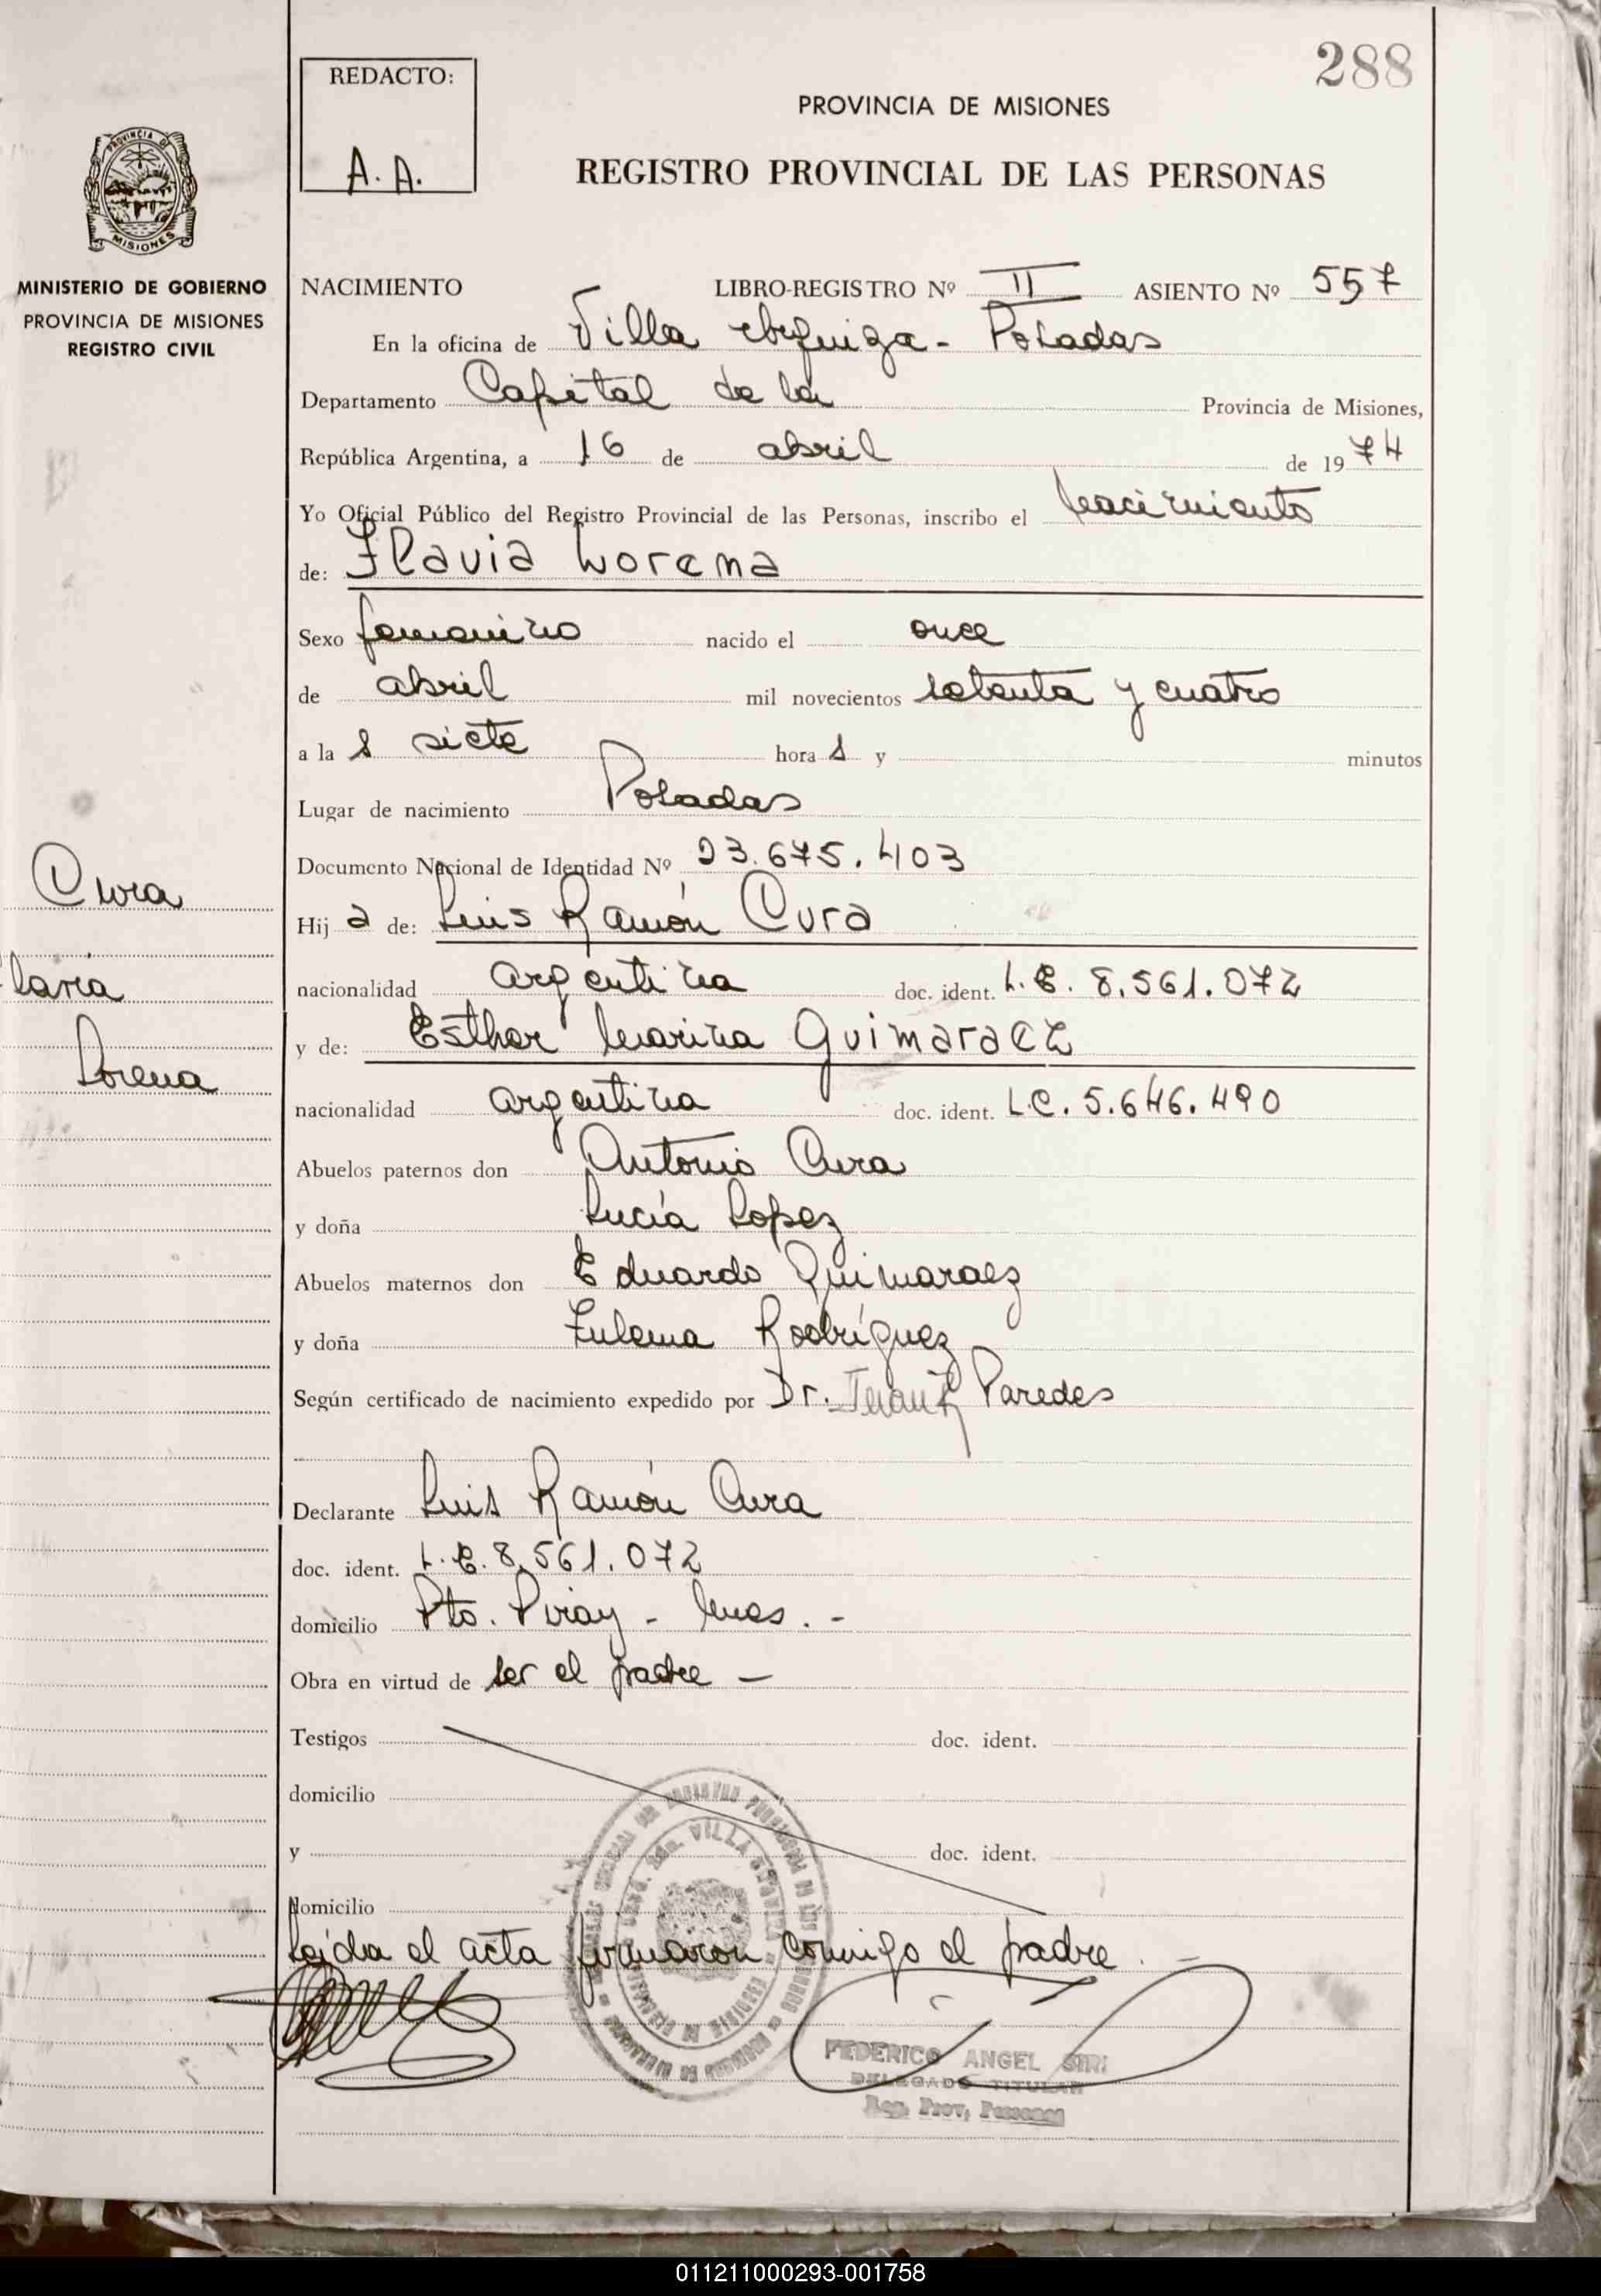 288
REDACTO:
A.A.
PROVINCIA DE MISIONES
REGISTRO PROVINCIAL DE LAS PERSONAS
PROVINCIA DE
MISIONES
MINISTERIO DE GOBIERNO
PROVINCIA DE MISIONES
REGISTRO CIVIL
NACIMIENTO LIBRO-REGISTRO Nº II ASIENTO Nº 557
En la oficina de Villa Posadas
Departamento Capital de la Provincia de Misiones,
República Argentina, a 16 de abril de 1974
Yo Oficial Público del Registro Provincial de las Personas, inscribo el nacimiento
de: Flavia Lorena
Sexo femenino nacido el once
de abril mil novecientos setenta y cuatro
a las siete horas y minutos
Lugar de nacimiento Posadas
Documento Nacional de Identidad Nº 23.675.403
Cura
Hija de: Luis Ramón Cura
lavia
nacionalidad argentina doc. ident. L.E. 8.561.072
y de: Esther Marina Guimaraez
Lorena
nacionalidad argentina doc. ident. L.C. 5.646.490
Abuelos paternos don Antonio Cura
y doña Lucía Lopez
Abuelos maternos don Eduardo Guimaraez
y doña Zulema Rodríguez
Según certificado de nacimiento expedido por Dr. Paredes
Declarante Luis Ramón Cura
doc. ident. L.E. 8.561.072
domicilio Pto. Piray - Mnes. -
Obra en virtud de ser el padre -
Testigos doc. ident.
domicilio
y doc. ident.
domicilio
Leida el acta firmaron conmigo el padre. -
FEDERICO ANGEL SIRI
DELEGADO TITULAR
Reg. Prov. Personas
011211000293-001758